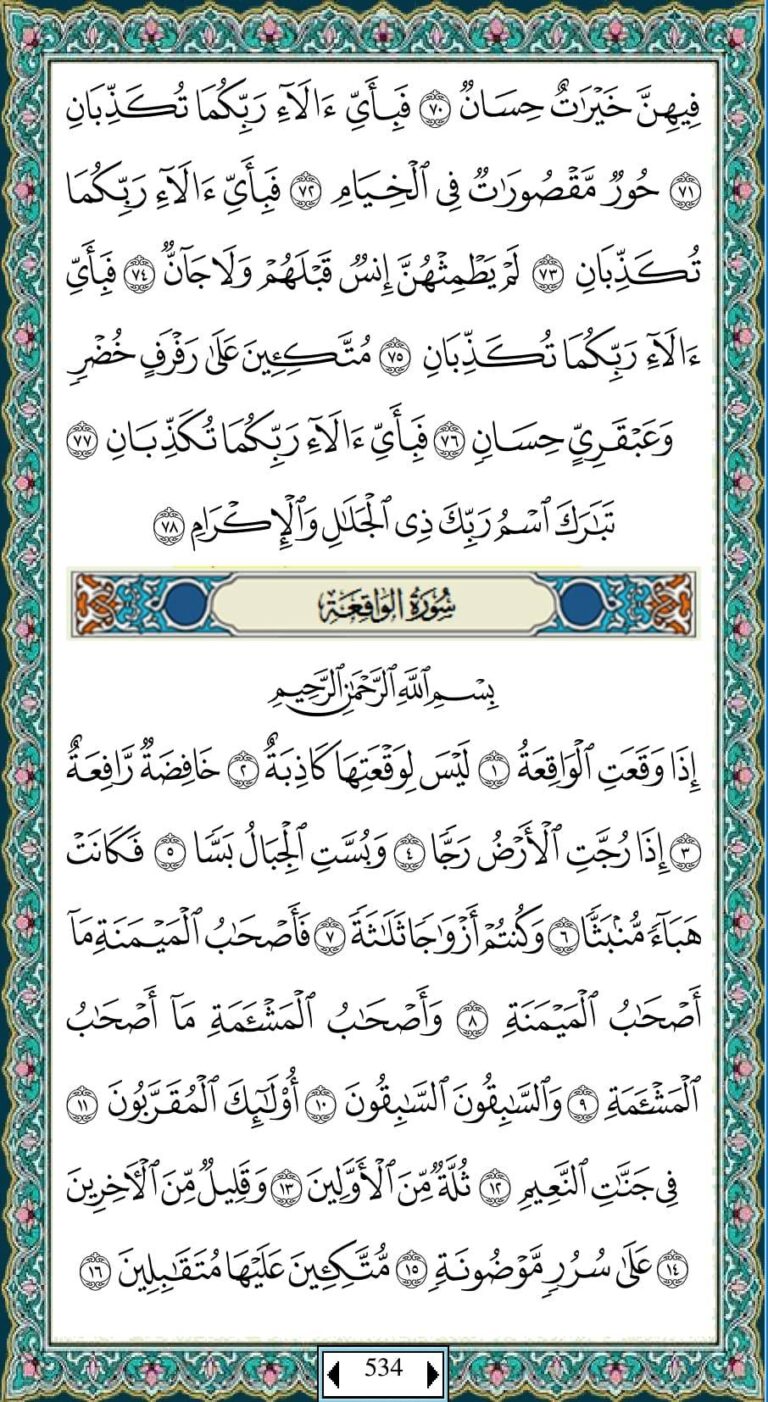 فِيهِنَّ خَيْرَٰتٌ حِسَانٌ ﴿٧٠﴾ فَبِأَيِّ ءَالَآءِ رَبِّكُمَا تُكَذِّبَانِ
﴿٧١﴾ حُورٌ مَّقْصُورَٰتٌ فِى ٱلْخِيَامِ ﴿٧٢﴾ فَبِأَيِّ ءَالَآءِ رَبِّكُمَا
تُكَذِّبَانِ ﴿٧٣﴾ لَمْ يَطْمِثْهُنَّ إِنسٌ قَبْلَهُمْ وَلَا جَآنٌّ ﴿٧٤﴾ فَبِأَيِّ
ءَالَآءِ رَبِّكُمَا تُكَذِّبَانِ ﴿٧٥﴾ مُتَّكِـِٔينَ عَلَىٰ رَفْرَفٍ خُضْرٍ
وَعَبْقَرِيٍّ حِسَانٍ ﴿٧٦﴾ فَبِأَيِّ ءَالَآءِ رَبِّكُمَا تُكَذِّبَانِ ﴿٧٧﴾
تَبَٰرَكَ ٱسْمُ رَبِّكَ ذِى ٱلْجَلَٰلِ وَٱلْإِكْرَامِ ﴿٧٨﴾
سُورَةُ الوَاقِعَةِ
بِسْمِ ٱللَّهِ ٱلرَّحْمَٰنِ ٱلرَّحِيمِ
إِذَا وَقَعَتِ ٱلْوَاقِعَةُ ﴿١﴾ لَيْسَ لِوَقْعَتِهَا كَاذِبَةٌ ﴿٢﴾ خَافِضَةٌ رَّافِعَةٌ
﴿٣﴾ إِذَا رُجَّتِ ٱلْأَرْضُ رَجًّا ﴿٤﴾ وَبُسَّتِ ٱلْجِبَالُ بَسًّا ﴿٥﴾ فَكَانَتْ
هَبَآءً مُّنۢبَثًّا ﴿٦﴾ وَكُنتُمْ أَزْوَٰجًا ثَلَٰثَةً ﴿٧﴾ فَأَصْحَٰبُ ٱلْمَيْمَنَةِ مَآ
أَصْحَٰبُ ٱلْمَيْمَنَةِ ﴿٨﴾ وَأَصْحَٰبُ ٱلْمَشْـَٔمَةِ مَآ أَصْحَٰبُ
ٱلْمَشْـَٔمَةِ ﴿٩﴾ وَٱلسَّٰبِقُونَ ٱلسَّٰبِقُونَ ﴿١٠﴾ أُو۟لَٰٓئِكَ ٱلْمُقَرَّبُونَ ﴿١١﴾
فِى جَنَّٰتِ ٱلنَّعِيمِ ﴿١٢﴾ ثُلَّةٌ مِّنَ ٱلْأَوَّلِينَ ﴿١٣﴾ وَقَلِيلٌ مِّنَ ٱلْـَٔاخِرِينَ
﴿١٤﴾ عَلَىٰ سُرُرٍ مَّوْضُونَةٍ ﴿١٥﴾ مُّتَّكِـِٔينَ عَلَيْهَا مُتَقَٰبِلِينَ ﴿١٦﴾
534